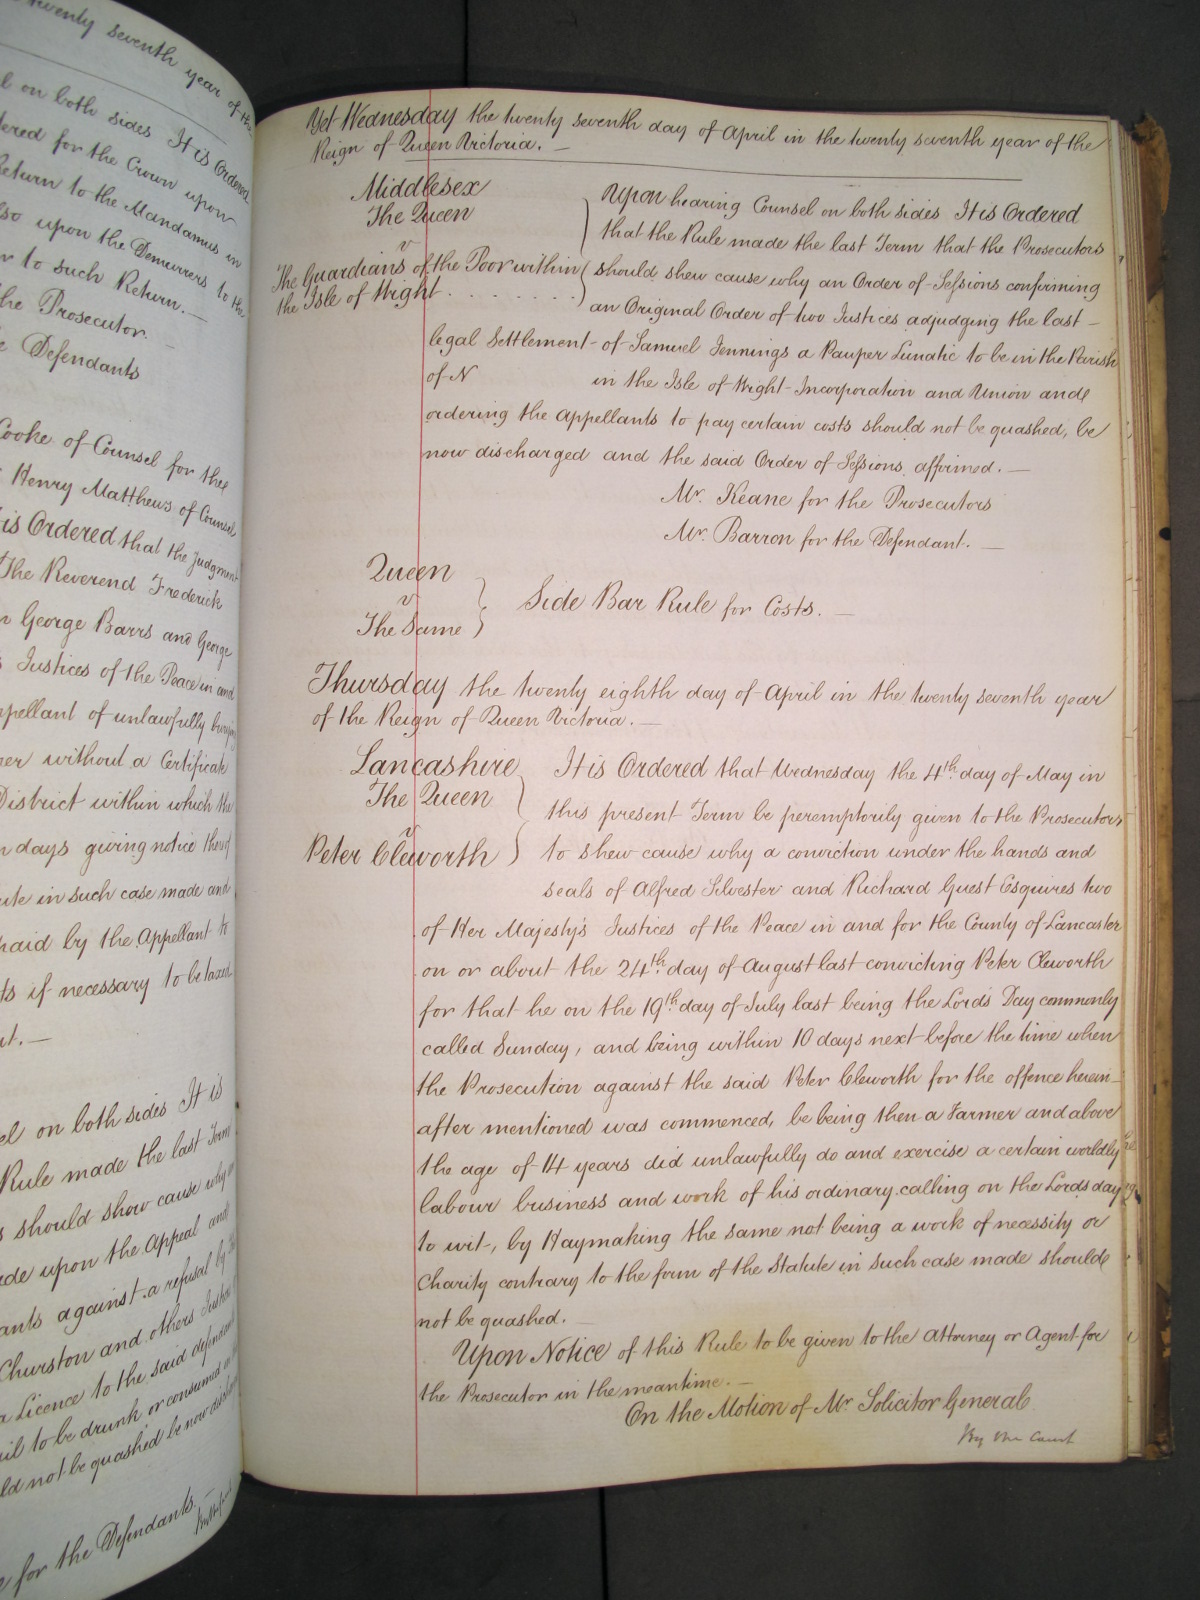 twenty seventh year of the
l on both sides It is Ordered
ered for the Crown upon
Return to the Mandamus in
lso upon the Demurrers to the
r to such Return. —
the Prosecutor. —
e Defendants
Cooke of Counsel for the
Henry Matthews of Counsel
is Ordered that the Judgment
The Reverend Frederick
n George Barrs and George
s Justices of the Peace in and
ppellant of unlawfully
er without a Certificate
District within which the
n days giving notice thereof
ute in such case made and
paid by the Appellant to
ts if necessary to be taxed
nt. —
el on both sides It is
Rule made the last Term
s should show cause why
ade upon the Appeal and
ants against a refusal by
Churston and others Justices
a Licence to the said defendant
ail to be drunk or consumed
ld not be quashed be now
e for the Defendants. —
Yet Wednesday the twenty seventh day of April in the twenty seventh year of the
Reign of Queen Victoria. —
Middlesex
The Queen
v
The Guardians of the Poor within
the Isle of Wight . . . . . . . .
Upon hearing Counsel on both sides It is Ordered
that the Rule made the last Term that the Prosecutors
should shew cause why an Order of Sessions confirming
an Original Order of two Justices adjudging the last —
legal Settlement of Samuel Jennings a Pauper Lunatic to be in the Parish
of N in the Isle of Wight Incorporation and Union and
ordering the Appellants to pay certain costs should not be quashed, be
now discharged and the said Order of Sessions affirmed. —
Mr. Keane for the Prosecutors
Mr. Barron for the Defendant. —
Queen
v
The Same
Side Bar Rule for Costs. —
Thursday the twenty eighth day of April in the twenty seventh year
of the Reign of Queen Victoria. —
Lancashire
The Queen
v
Peter Cleworth
It is Ordered that Wednesday the 4th day of May in
this present Term be peremptorily given to the Prosecutors
to shew cause why a conviction under the hands and
seals of Alfred Silvester and Richard Guest Esquires two
of Her Majesty's Justices of the Peace in and for the County of Lancaster
on or about the 24th day of August last convicting Peter Cleworth
for that he on the 19th day of July last being the Lord's Day commonly
called Sunday, and being within 10 days next before the time when
the Prosecution against the said Peter Cleworth for the offence herein
after mentioned was commenced, he being then a Farmer and above
the age of 14 years did unlawfully do and exercise a certain worldly
labour business and work of his ordinary calling on the Lords day
to wit, by Haymaking the same not being a work of necessity or
Charity contrary to the form of the Statute in such case made should
not be quashed. —
Upon Notice of this Rule to be given to the Attorney or Agent for
the Prosecutor in the meantime. —
On the Motion of Mr Solicitor General
By the Court